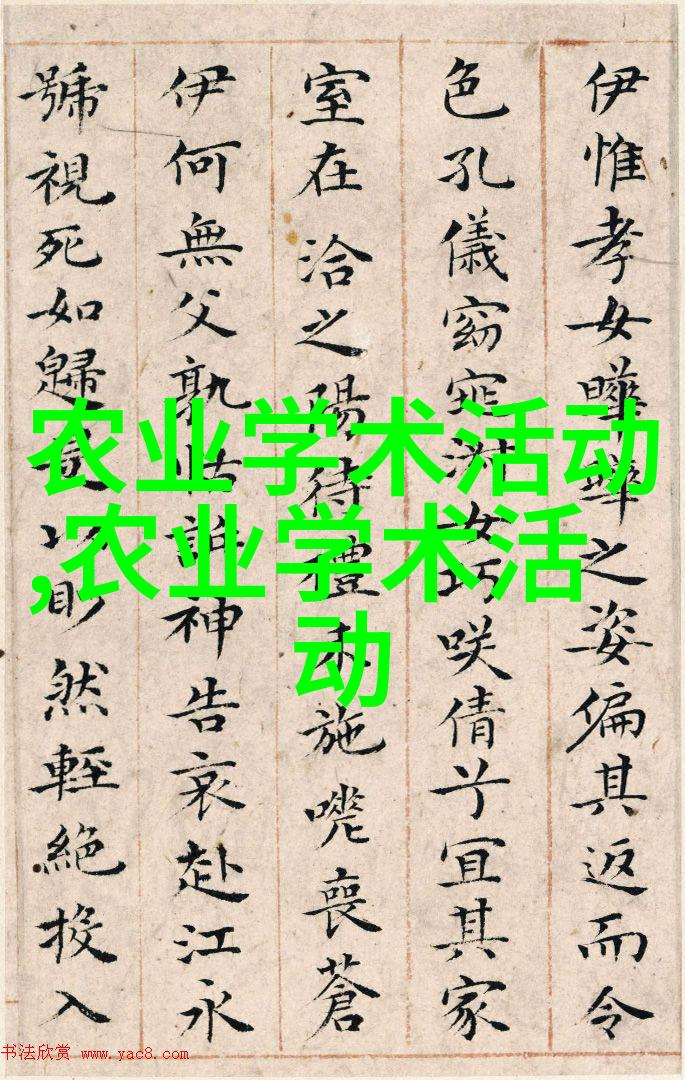 伊惟孝女曄曄之姿偏其返而令
色孔儀窈窕淑女巧咲倩兮宜其家
室在洽之陽待禮未施嗟喪蒼
伊何無父孰怙訴神告哀赴江永
號視死如歸是以眇然輕絕投入
农业学术活动
,农业学术活
动
书法欣赏 www.yac8.com